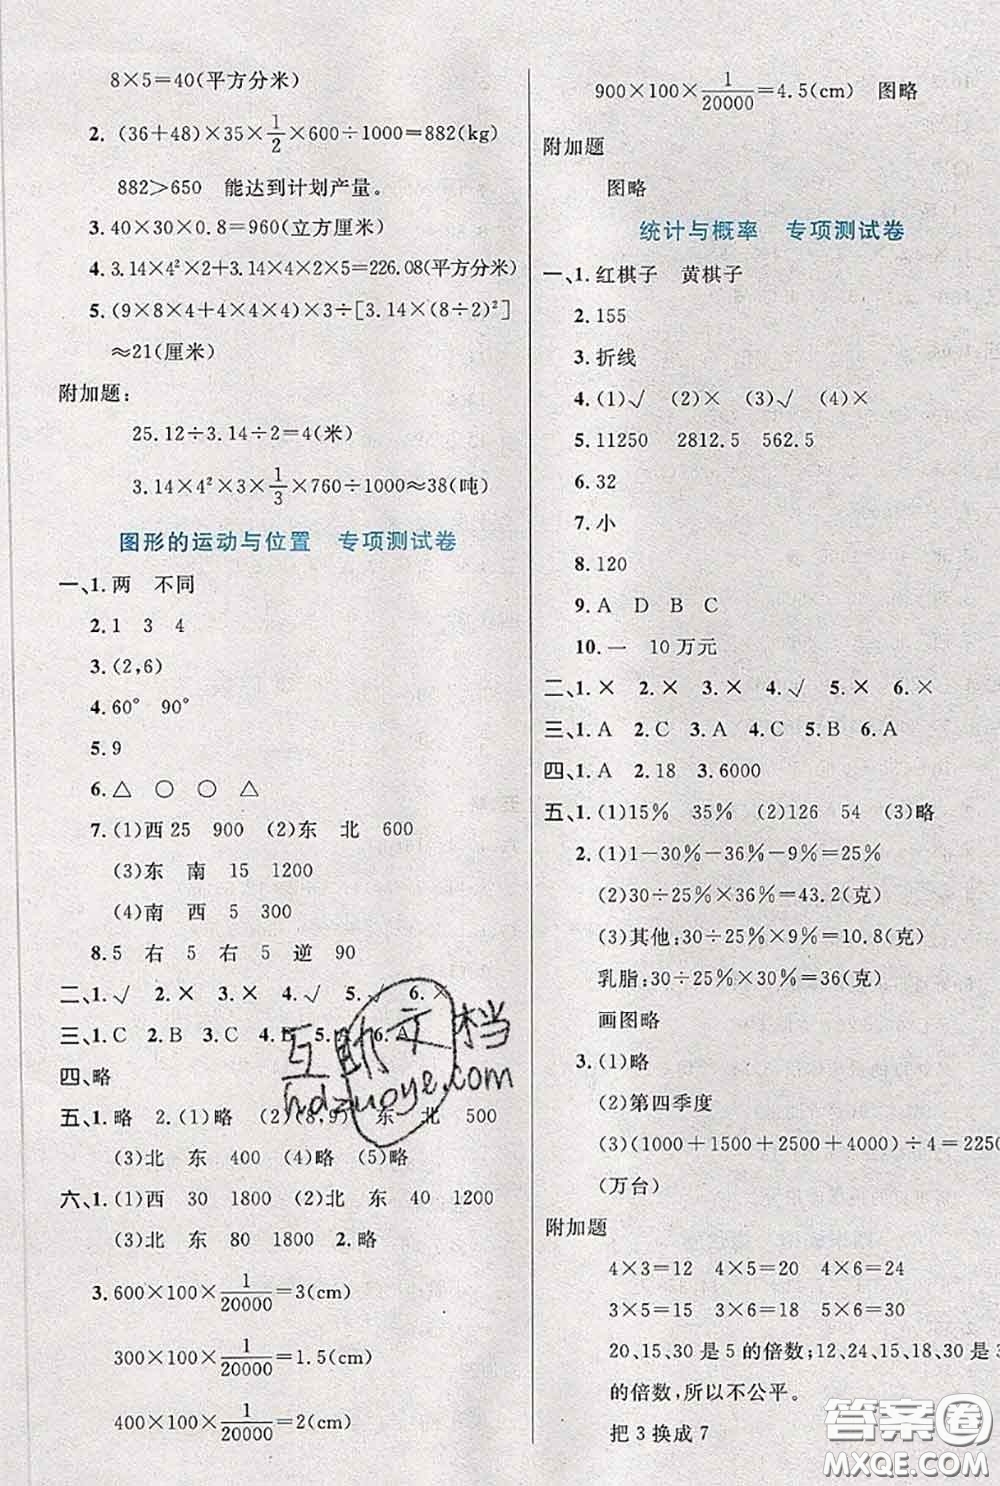 8×5=40(平方分米)
2. (36+48)×35×1/2×600÷1000=882(kg)
882>650　能达到计划产量。
3. 40×30×0.8=960(立方厘米)
4. 3.14×4²×2+3.14×4×2×5=226.08(平方分米)
5. (9×8×4+4×4×4)×3÷[3.14×(8÷2)²]
≈21(厘米)
附加题：
25.12÷3.14÷2=4(米)
3.14×4²×3×1/3×760÷1000≈38(吨)
图形的运动与位置　专项测试卷
一、1. 两　不同
2. 1　3　4
3. (2,6)
4. 60°　90°
5. 9
6. △　○　○　△
7. (1)西 25　900　(2)东　北　600
(3)东　南　15　1200
(4)南　西　5　300
8. 5　右　5　右　5　逆　90
二、1. √　2. ×　3. ×　4. √　5. √　6. ×
三、1. C　2. B　3. C　4. B　5. A　6. A
四、略
五、1. 略　2. (1)略　(2)(8,9)　东　北　500
(3)北　东　400　(4)略　(5)略
六、1. (1)西　30　1800　(2)北　东　40　1200
(3)北　东　80　1800　2. 略
3. 600×100×1/20000=3(cm)
300×100×1/20000=1.5(cm)
400×100×1/20000=2(cm)
900×100×1/20000=4.5(cm)　图略
附加题
图略
统计与概率　专项测试卷
一、1. 红棋子　黄棋子
2. 155
3. 折线
4. (1)√　(2)×　(3)√　(4)×
5. 11250　2812.5　562.5
6. 32
7. 小
8. 120
9. A　D　B　C
10. 一　10 万元
二、1. ×　2. ×　3. ×　4. √　5. ×　6. ×
三、1. A　2. C　3. A　4. C　5. B　6. A
四、1. A　2. 18　3. 6000
五、1. (1)15%　35%　(2)126　54　(3)略
2. (1)1-30%-36%-9%=25%
(2)30÷25%×36%=43.2(克)
(3)其他：30÷25%×9%=10.8(克)
乳脂：30÷25%×30%=36(克)
画图略
3. (1)略
(2)第四季度
(3)(1000+1500+2500+4000)÷4=2250
(万台)
附加题
4×3=12　4×5=20　4×6=24
3×5=15　3×6=18　5×6=30
20、15、30 是 5 的倍数；12、24、15、18、30 是 3
的倍数，所以不公平。
把 3 换成 7
互助文档
hdzuoye.com
答案圈
MXQE.COM